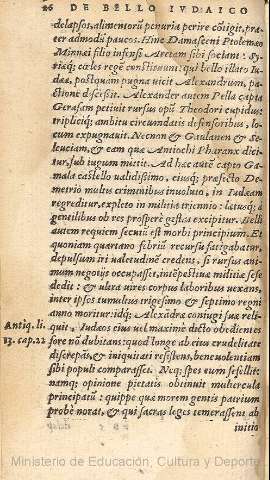 26 DE BELLO IVDAICO
delapsos, alimentorũ penuria perire cõtigit, præ-
ter admodũ paucos. Hinc Damasceni Ptolemæo
Minnæi filio infensi Aretam sibi sociant: Sy-
riæq; cœles regẽ constituunt: qui bello illato Iu-
dææ, postquam pugna vicit Alexandrum, pa-
ctione discessit. Alexander autem Pella capta
Gerasam petiuit rursus opũ Theodori cupidus:
tripliciq; ambitu circundatis defensoribus, lo-
cum expugnauit. Necnon & Gaulanen & Se-
leuciam, & eam quæ Antiochi Pharanx dici-
tur, sub iugum mittit. Ad hæc autẽ capto Ga-
mala castello validissimo, eiusq; præfecto De-
metrio multis criminibus inuoluto, in Iudæam
regreditur, expleto in militia triennio: lætusq; à
gentilibus ob res prosperè gestas excipitur. Belli
autem requiem secutũ est morbi principium. Et
quoniam quartano febriũ recursu fatigabatur,
depulsum iri valetudinẽ credens, si rursus ani-
mum negotijs occupasset, intẽpestiuæ militiæ sese
dedit: & vltra vires corpus laboribus vexans,
inter ipsos tumultus trigesimo & septimo regni
anno moritur: idq; Alexãdræ coniugi suæ reli-
Antiq. li. quit: Iudæos eius vel maximè dicto obedientes
13. cap. 22 fore nõ dubitans: quòd longe ab eius crudelitate
discrepãs, & iniquitati resistens, beneuolentiam
sibi populi comparasset. Neq; spes eum fefellit:
namq; opinione pietatis obtinuit muliercula
principatũ: quippe quæ morem gentis patrium
probè norat, & qui sacras leges temerassent ab
initio
Ministerio de Educación, Cultura y Deporte